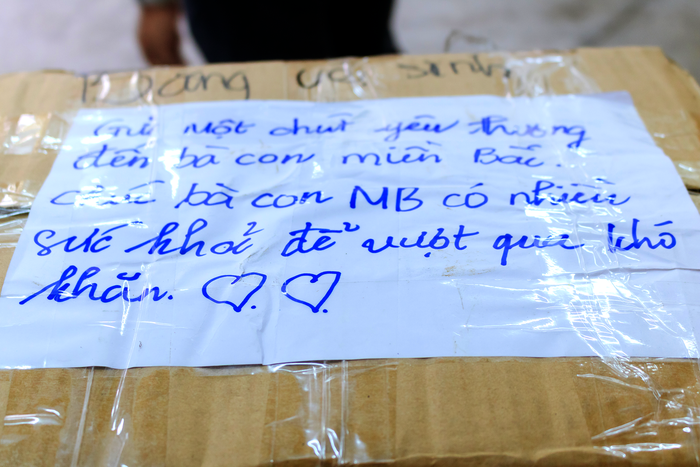 Băng vệ sinh
Gửi một chút yêu thương
đến bà con miền Bắc.
chúc bà con MB có nhiều
sức khoẻ để vượt qua khó
khăn.